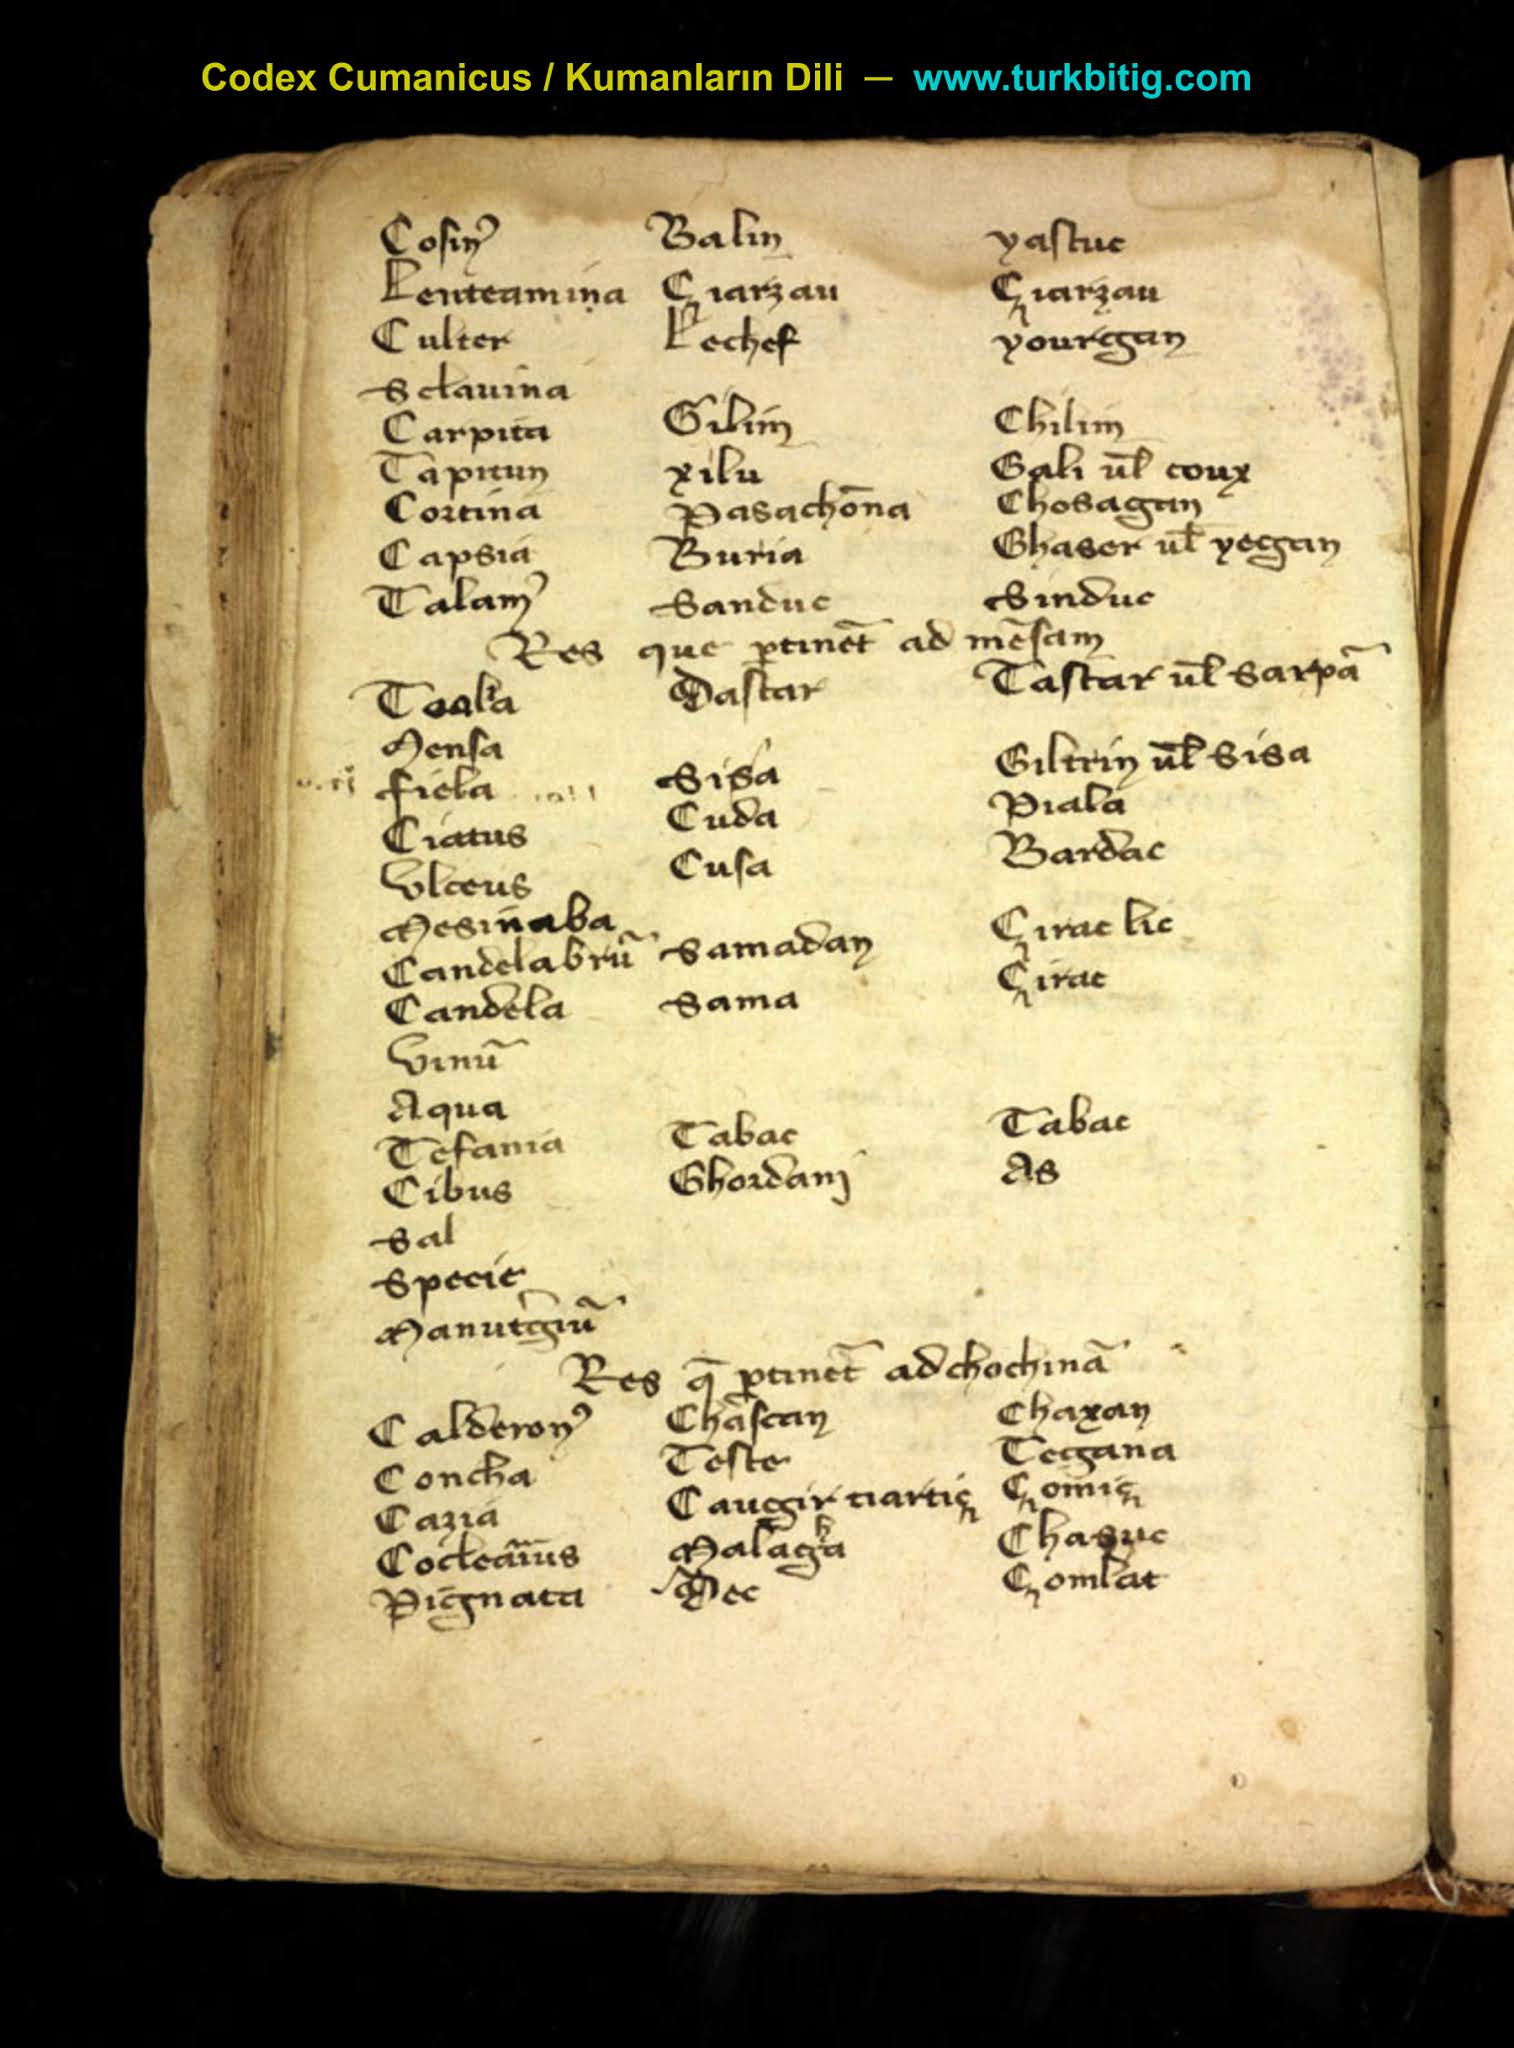 Codex Cumanicus / Kumanların Dili — www.turkbitig.com
Cosinꝰ Balin yastuc
Lenteamina Çiarzau Çiarzau
Culter Lechef yourgan
Sclauina
Carpita Gilim Chilim
Tapitun xilu Gali ul̄ coux
Cortina Pasachōna Chosagan
Capsia Buria Ghaser ul̄ yecgan
Talamꝰ Sanduc Sinduc
Res que ptinet̄ ad mēsam
Toalia Dastar Tastar ul̄ Sarpā
Mensa
fiela Sisa Giltrin ul̄ Sisa
Ciatus Cuda Piala
Vlceus Cusa Bardac
Mesinaba
Candelabrū Samadan Çirac lic
Candela Sama Çirac
Vinū
Aqua
Tefania Tabac Tabac
Cibus Ghordani As
Sal
Specie
Manutgiū
Res q̄ ptinet̄ ad chochinā
Calderonꝰ Chascan Chaxan
Concha Teste Tegana
Cazia Caucgir tiartiç Çomiç
Cocleārius Malagha Chasuc
Pignata Dec Çomlat